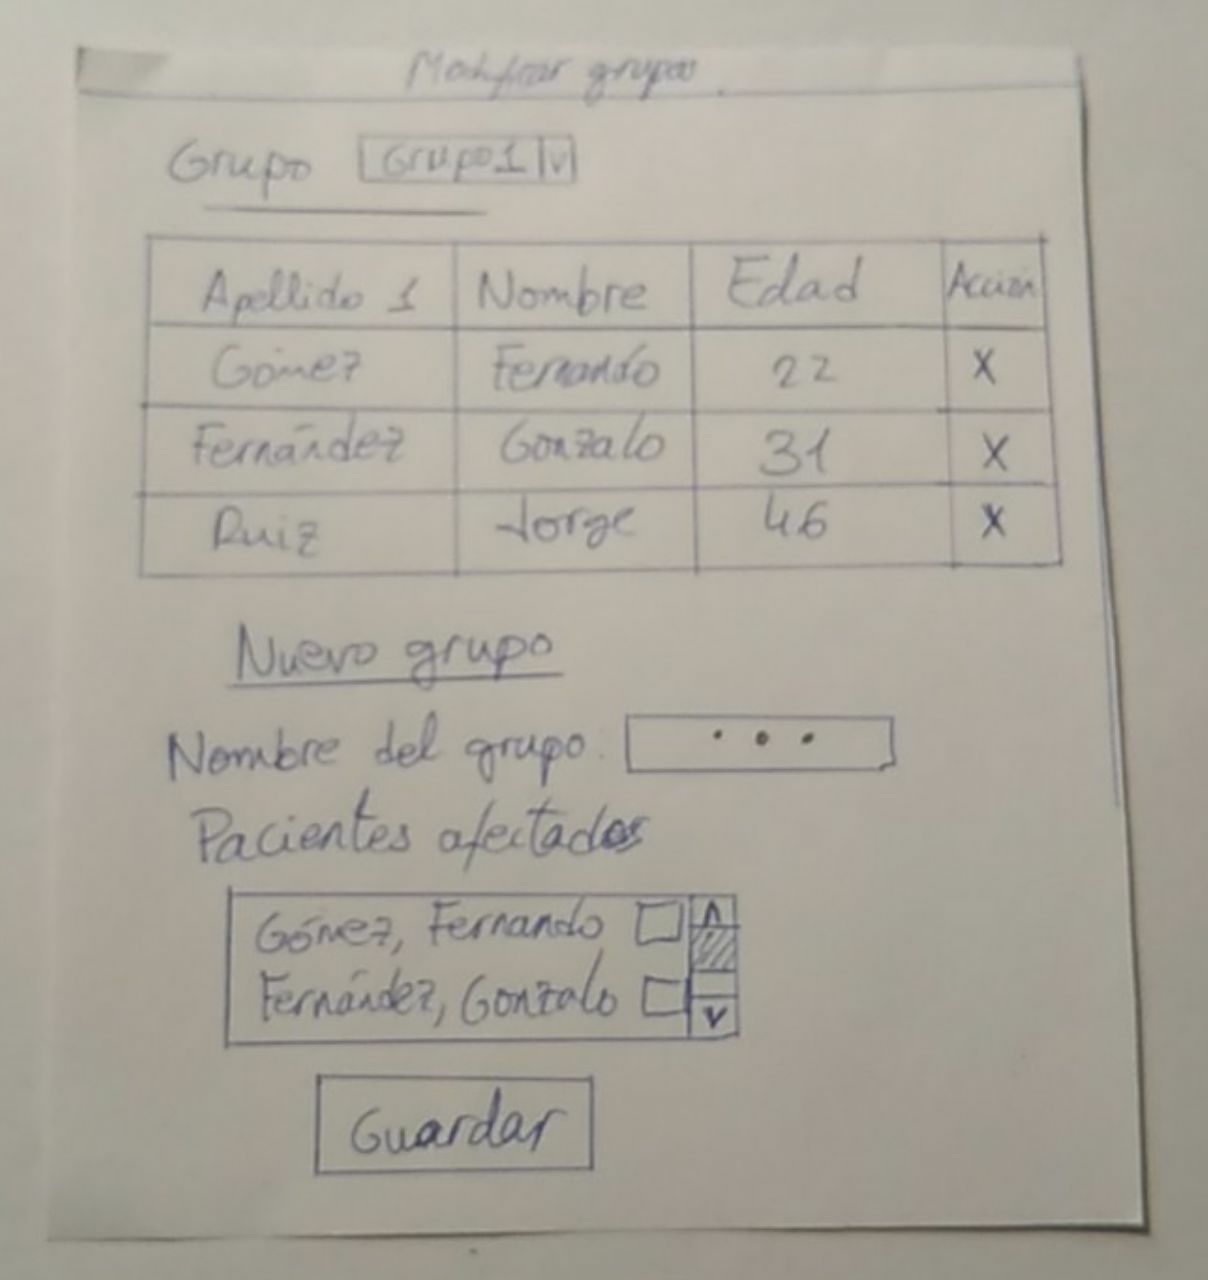 Modificar grupos
Grupo Grupo1 v
Apellido 1 Nombre Edad Acción
Gómez Fernando 22 X
Fernández Gonzalo 31 X
Ruiz Jorge 46 X
Nuevo grupo
Nombre del grupo: ...
Pacientes afectados
Gómez, Fernando
Fernández, Gonzalo
Guardar